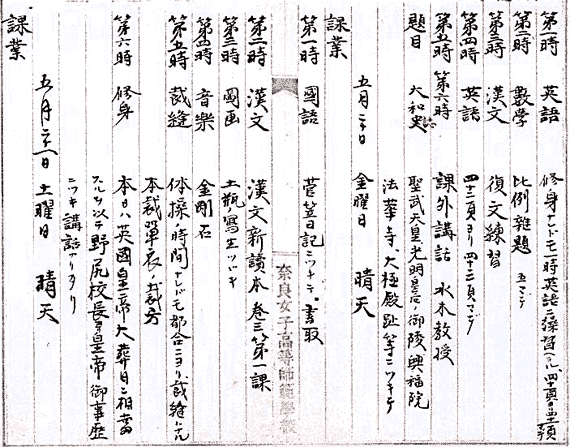 第一時　英語　修身ナレドモ一時英語ニ操習ヘラル四十頁ヨリ四十一頁
第二時　數學　比例雜題　五マデ
第三時　漢文　復文練習
第四時　英語　四十二頁ヨリ四十三頁マデ
第五時　第六時　課外講話　水木教授
題目　大和史　聖武天皇光明皇后ノ御陵興福院
法華寺、大極殿趾等ニツキテ
五月二十日　金曜日　晴天
課業
第一時　國語　菅笠日記ニツキテ。書取
第二時　漢文　漢文新讀本卷三第一課
第三時　圖画　土瓶寫生ツヅキ
第四時　音樂　金剛石
第五時　裁縫　体操ノ時間ナレドモ都合ニヨリ裁縫トナル
本裁單衣ノ裁方
第六時　修身　本日ハ英國皇帝大葬日ニ相當
スルヲ以テ野尻校長ヨリ皇帝ノ御事歴
ニツキ講話アリタリ
五月二十一日　土曜日　晴天
課業
奈良女子高等師範學校